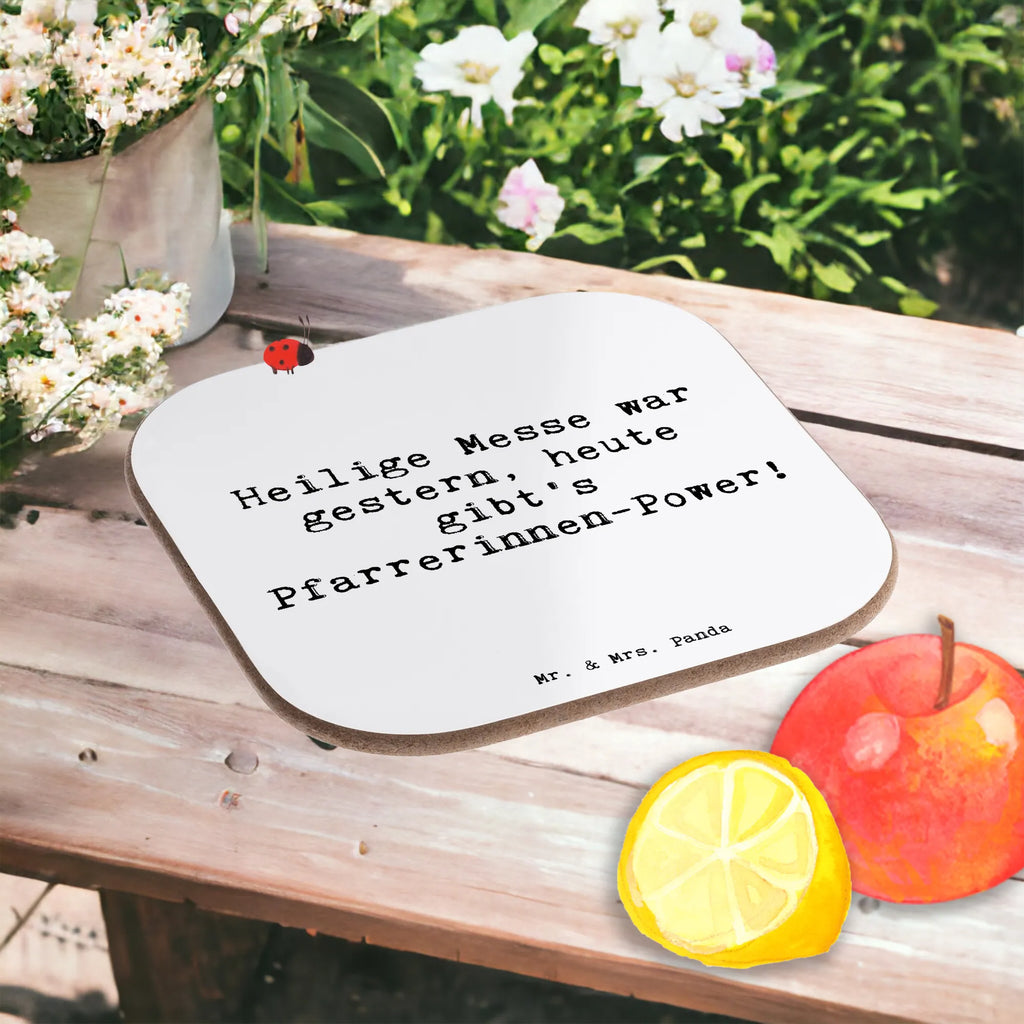 Heilige Messe war
gestern, heute
gibt's
Pfarrerinnen-Power!
Mr. & Mrs. Panda